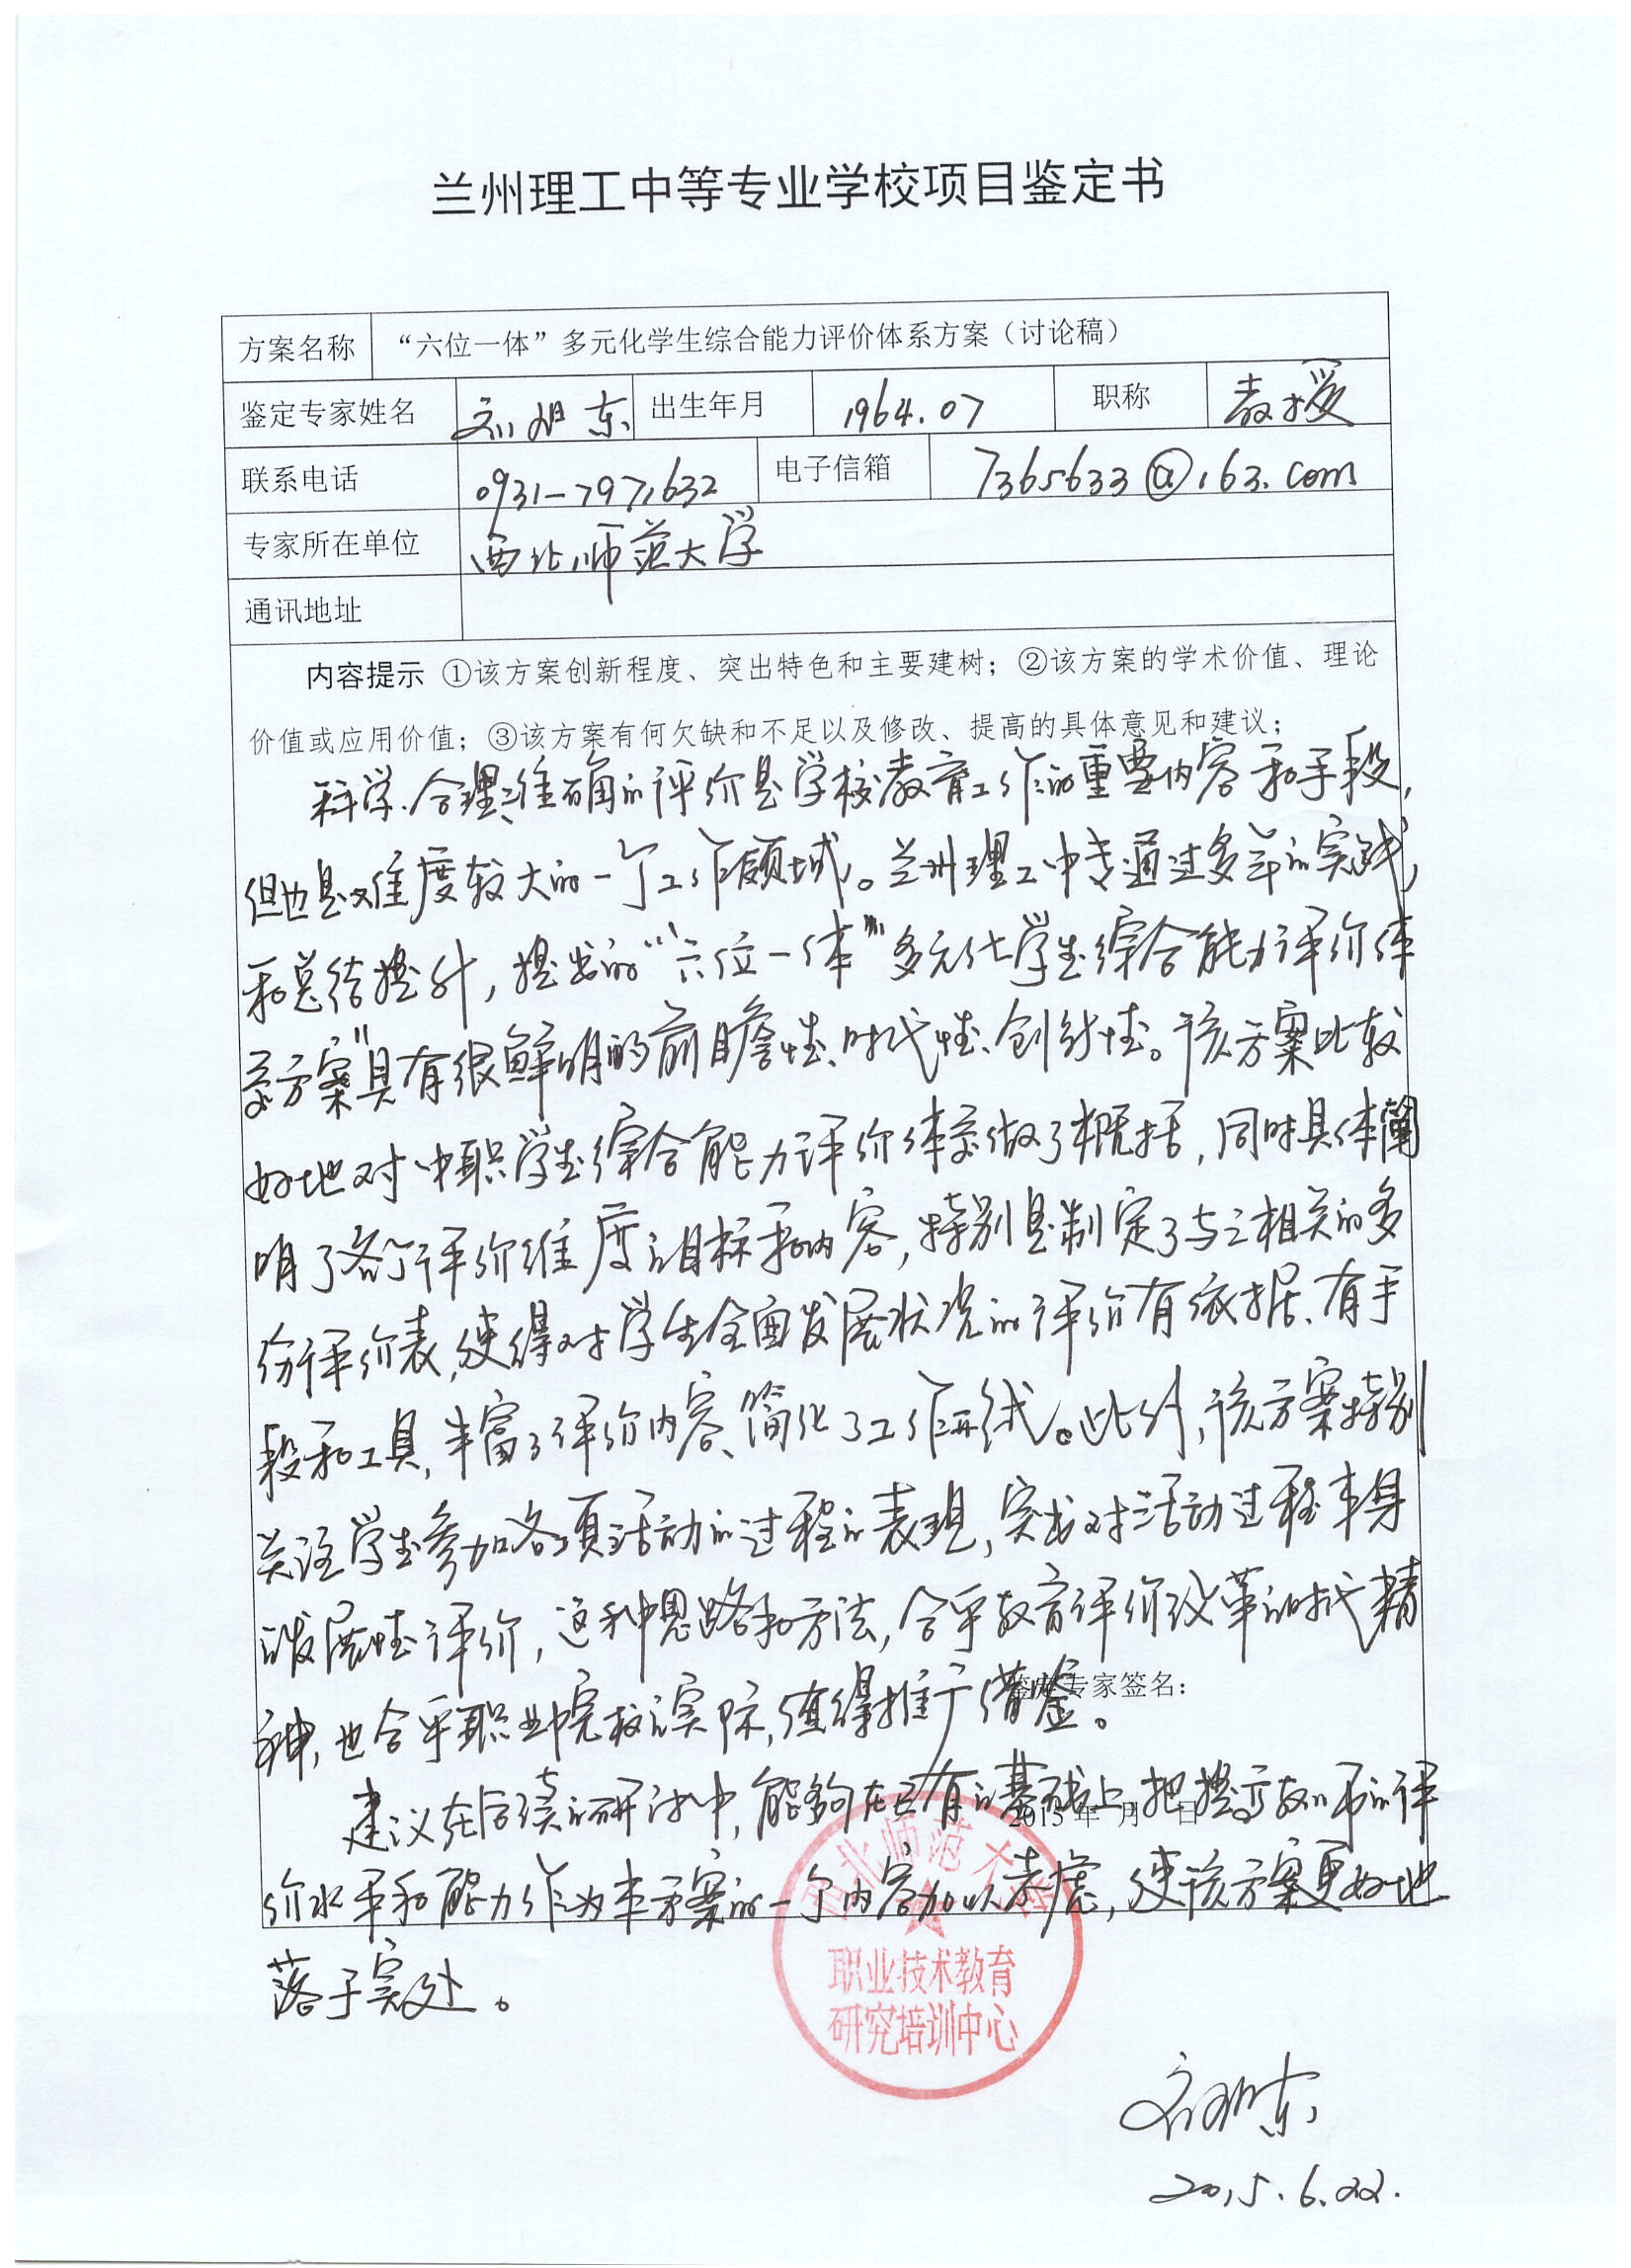 兰州理工中等专业学校项目鉴定书
方案名称 “六位一体”多元化学生综合能力评价体系方案（讨论稿）
鉴定专家姓名 刘旭东 出生年月 1964.07 职称 教授
联系电话 0931-7971632 电子信箱 7365633@163.com
专家所在单位 西北师范大学
通讯地址
内容提示 ①该方案创新程度、突出特色和主要建树；②该方案的学术价值、理论
价值或应用价值；③该方案有何欠缺和不足以及修改、提高的具体意见和建议；
科学、合理、准确的评价是学校教育工作的重要内容和手段，
但也是难度较大的一个工作领域。兰州理工中专通过多年的实践，
和总结提升，提出的“‘六位一体’多元化学生综合能力评价体
系方案”具有很鲜明的前瞻性、时代性、创新性。该方案比较
好地对中职学生综合能力评价体系做了概括，同时具体阐
明了各个评价维度的目标和内容，特别是制定了与之相关的多
份评价表，使得对学生全面发展状况的评价有依据、有手
段和工具，丰富了评价内容、简化了工作环节。此外，该方案特别
关注学生参加各项活动的过程的表现，突出对活动过程本身
的发展性评价，这种思路和方法，合乎教育评价改革的时代精
神，也合乎职业院校的实际，值得推广借鉴。
鉴定专家签名：
建议在后续的研讨中，能够在已有的基础上把提高教师的评
2015 年 月 日
价水平和能力作为本方案的一个内容加以考虑，使该方案更好地
落于实处。
西北师范大学
职业技术教育
研究培训中心
刘旭东
2015.6.22.